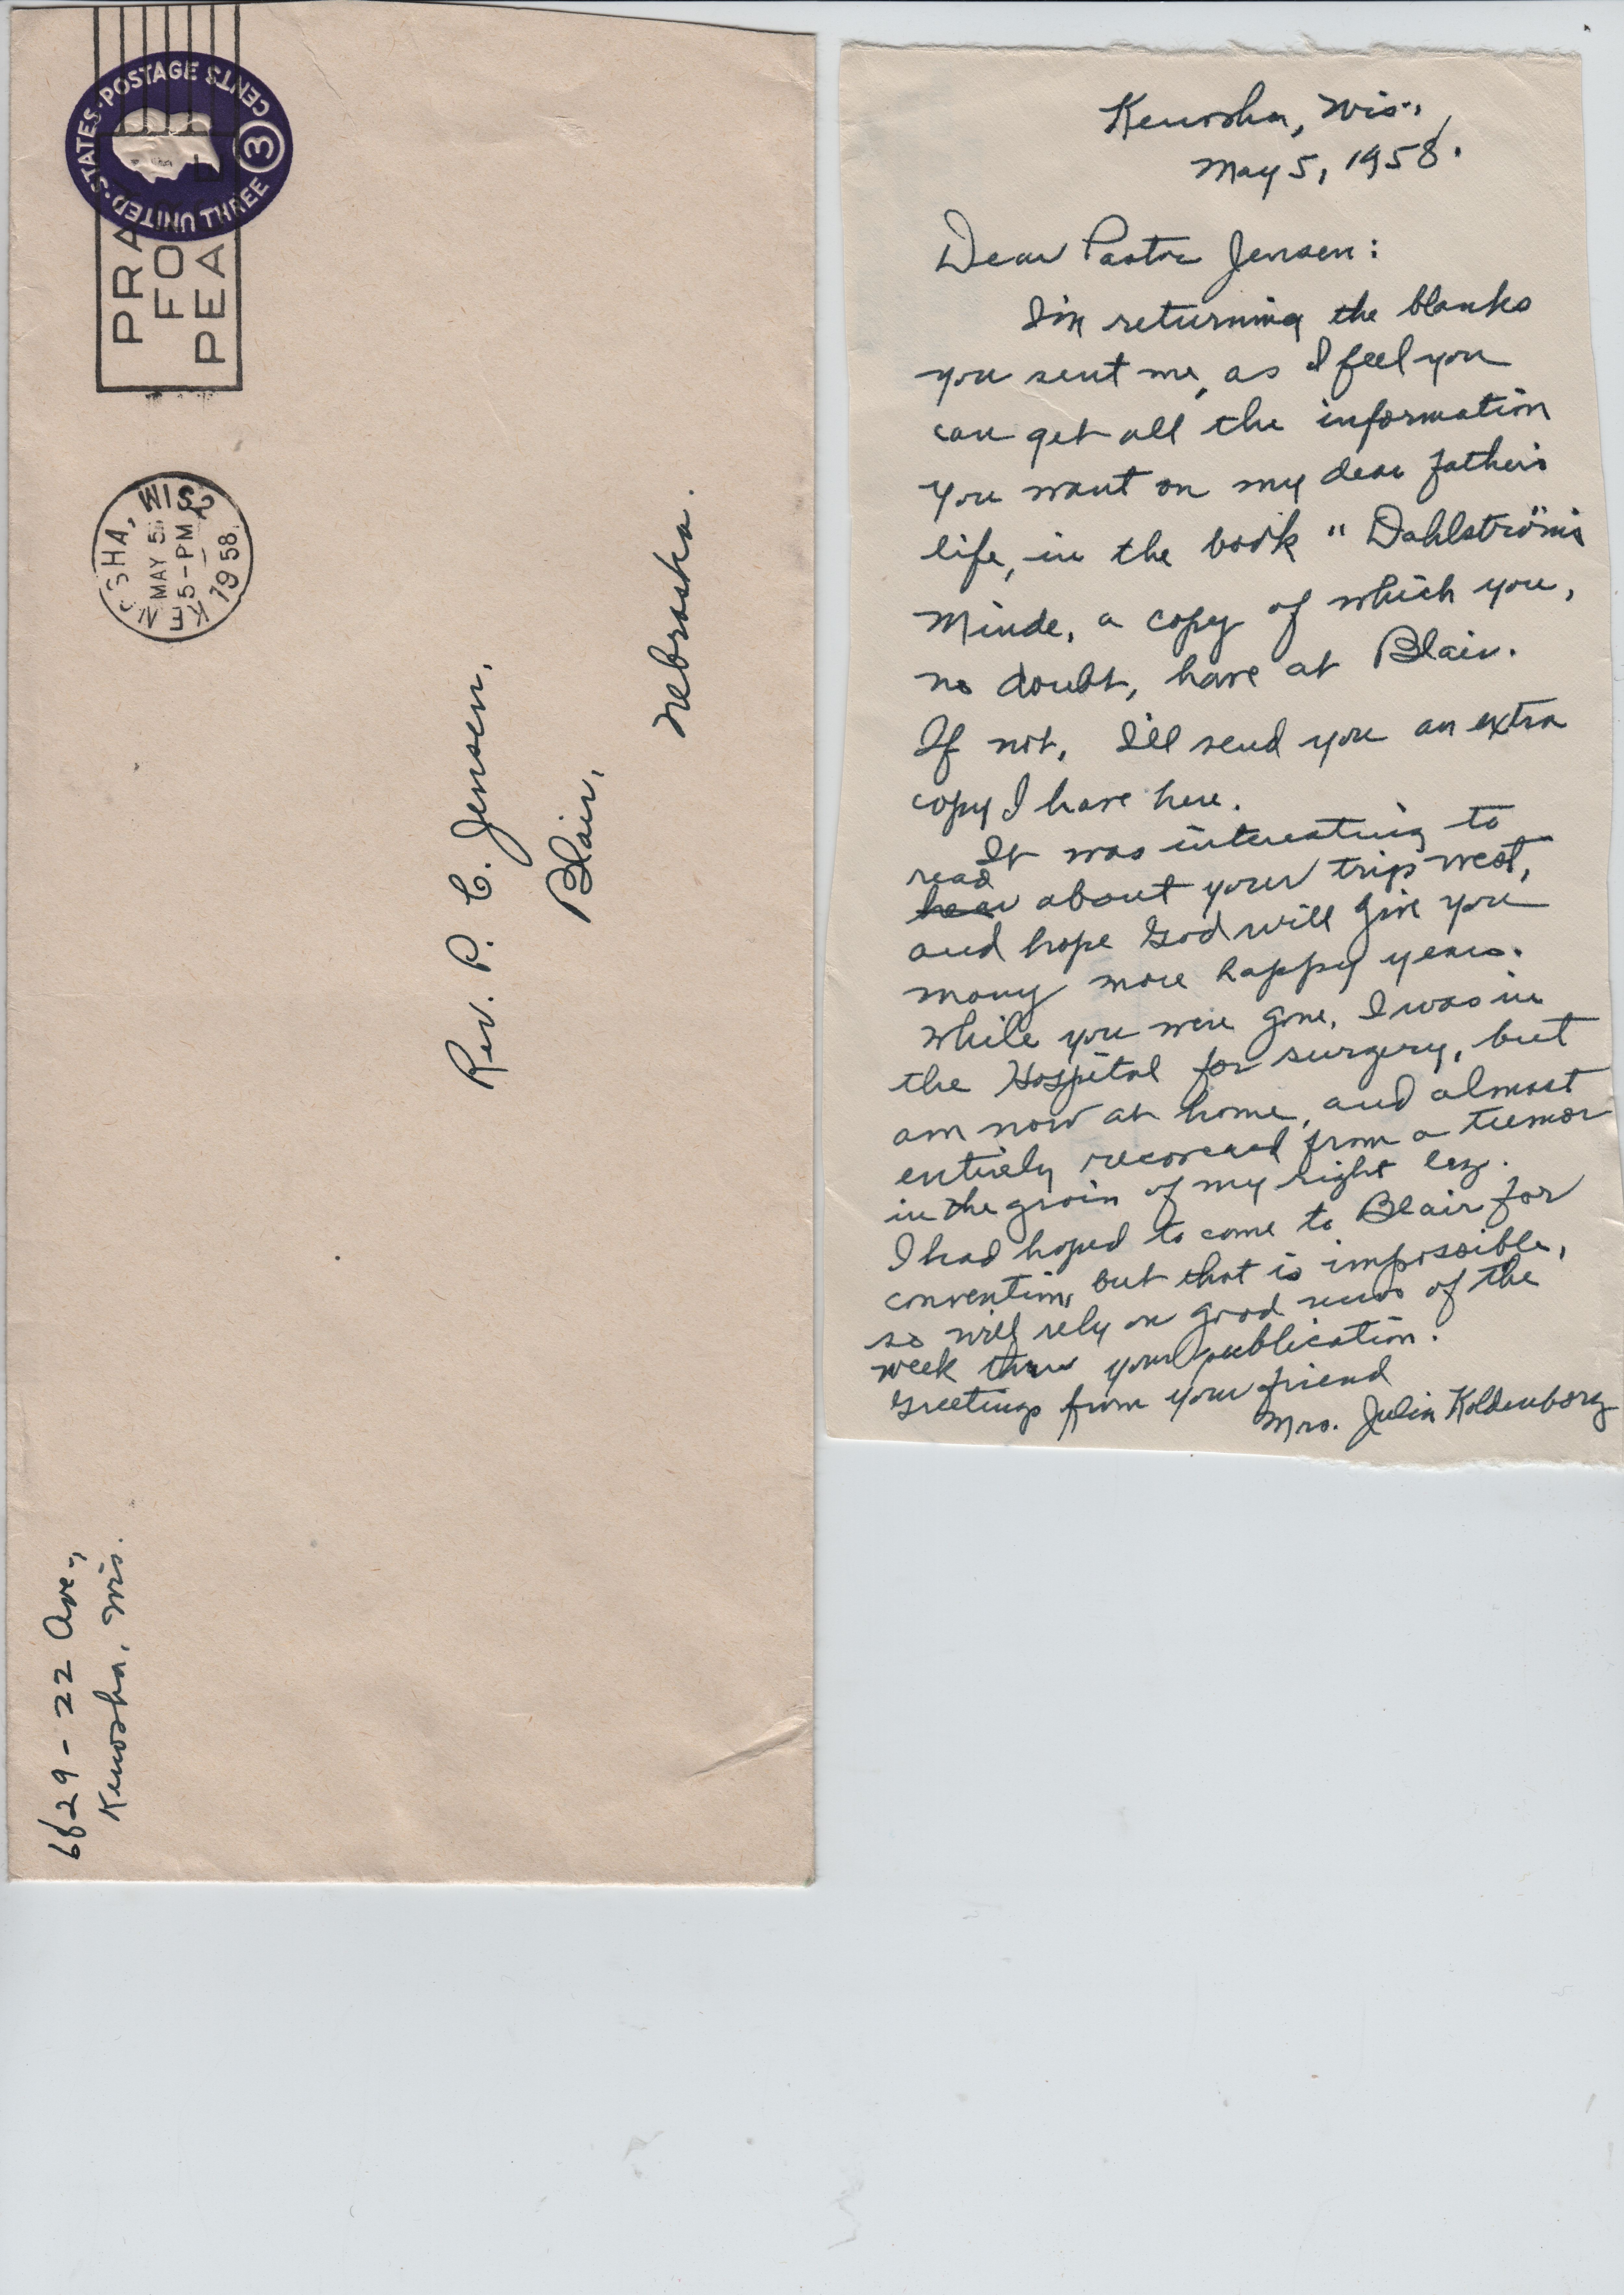 UNITED STATES · POSTAGE 3 CENTS THREE
PRA
FO
PEA
KENOSHA, WIS 2
MAY 5
5-PM
1958
6629 - 22 Ave.,
Kenosha, Wis.
Rev. P. C. Jensen,
Blair,
Nebraska.
Kenosha, Wis.,
May 5, 1958.
Dear Pastor Jensen:
I'm returning the blanks
you sent me, as I feel you
can get all the information
you want on my dear father's
life, in the book "Dahlström's
Minde, a copy of which you,
no doubt, have at Blair.
If not, I'll send you an extra
copy I have here.
It was interesting to
read
hear about your trip west,
and hope God will give you
many more happy years.
While you were gone, I was in
the Hospital for surgery, but
am now at home, and almost
entirely recovered from a tumor
in the groin of my right leg.
I had hoped to come to Blair for
convention, but that is impossible,
so will rely on good news of the
week thru your publication.
Greetings from your friend
Mrs. Julia Koldenborg